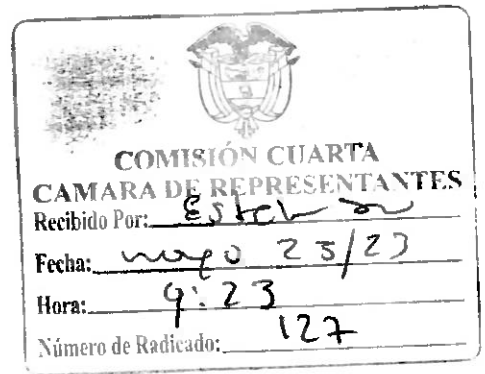 COMISIÓN CUARTA
CAMARA DE REPRESENTANTES
Recibido Por:
Fecha: mayo 23/23
Hora: 9:23
Número de Radicado: 127